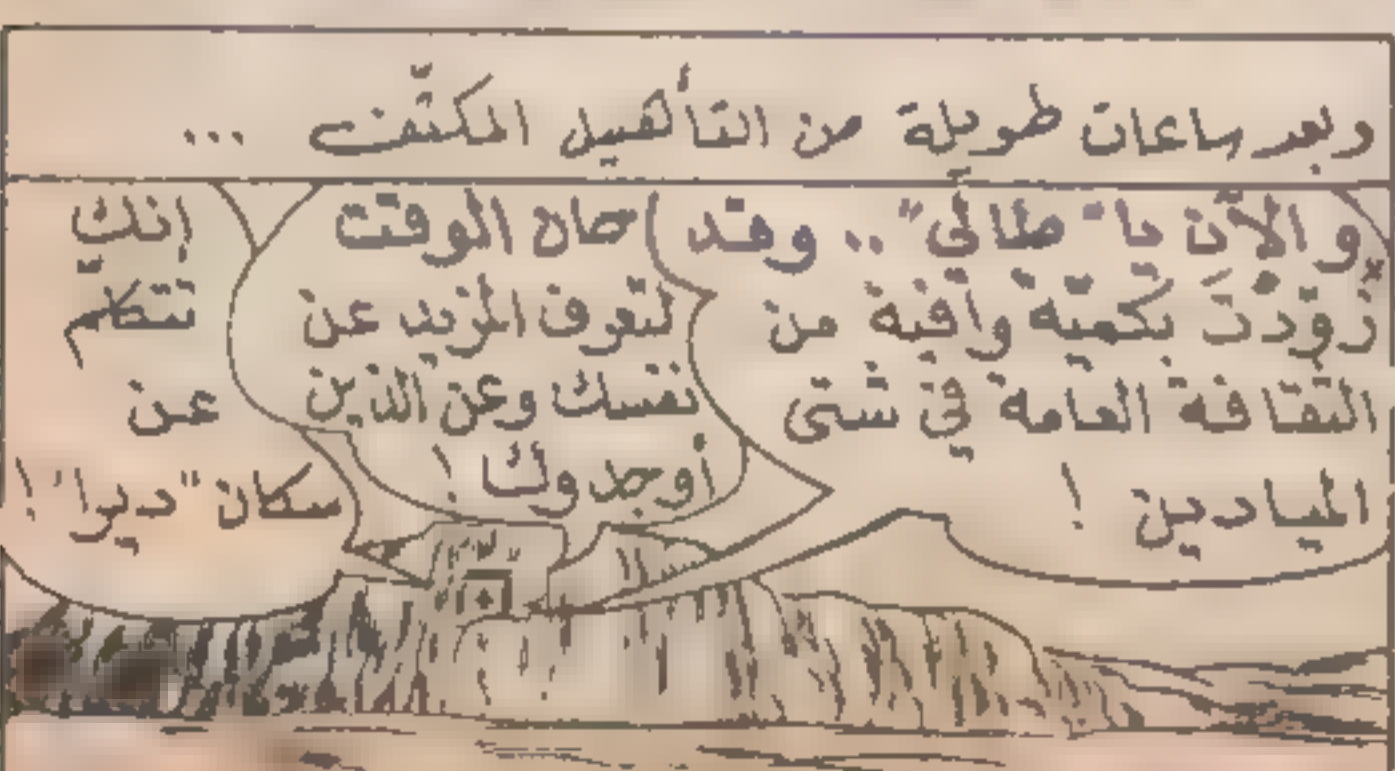 وبعد ساعات طويلة من التأهيل المكثّف ...
والآن يا "طالي" .. وقد
زُوّدتَ بكميّة وافية من
الثقافة العامة في شتى
الميادين !
حان الوقت
لتعرف المزيد عن
نفسك وعن الذين
أوجدوك !
إنك
تتكلّم
عن
سكان "ديرا" !